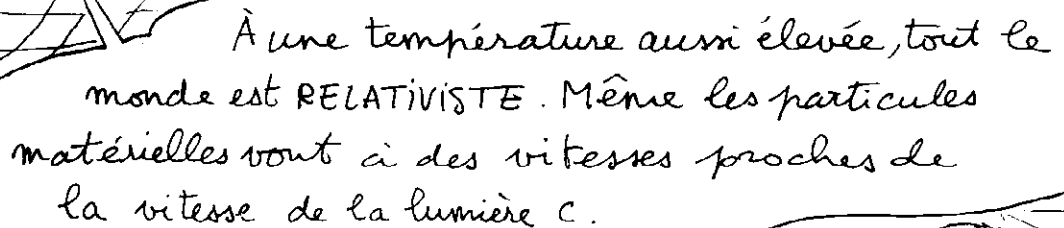 À une température aussi élevée, tout le
monde est RELATiViSTE. Même les particules
matérielles vont à des vitesses proches de
la vitesse de la lumière c.